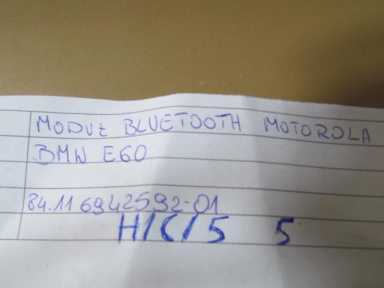 MODUŁ BLUETOOTH MOTOROLA
BMW E60
84.11 6942592-01
H/C/5 5